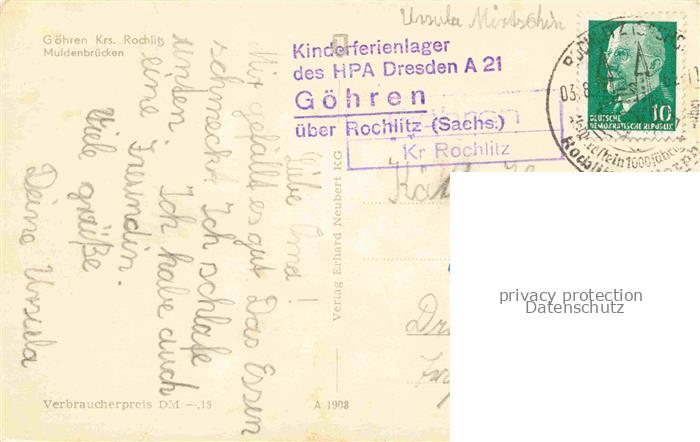 Göhren Krs. Rochlitz
Muldenbrücken
Liebe Oma!
Mir gefällt es gut Das Essen
schmeckt. Ich schlafe
unten Ich habe auch
eine Freundin.
Viele grüße
Deine Ursula
Verbraucherpreis DM —,15
A 1908
Verlag Erhard Neubert KG
Ursula Mirtschin
Kinderferienlager
des HPA Dresden A 21
Göhren
über Rochlitz (Sachs.)
Göhren
Kr Rochlitz
10
DEUTSCHE
DEMOKRATISCHE REPUBLIK
03.8.
1000jähr
Rochlitz
privacy protection
Datenschutz